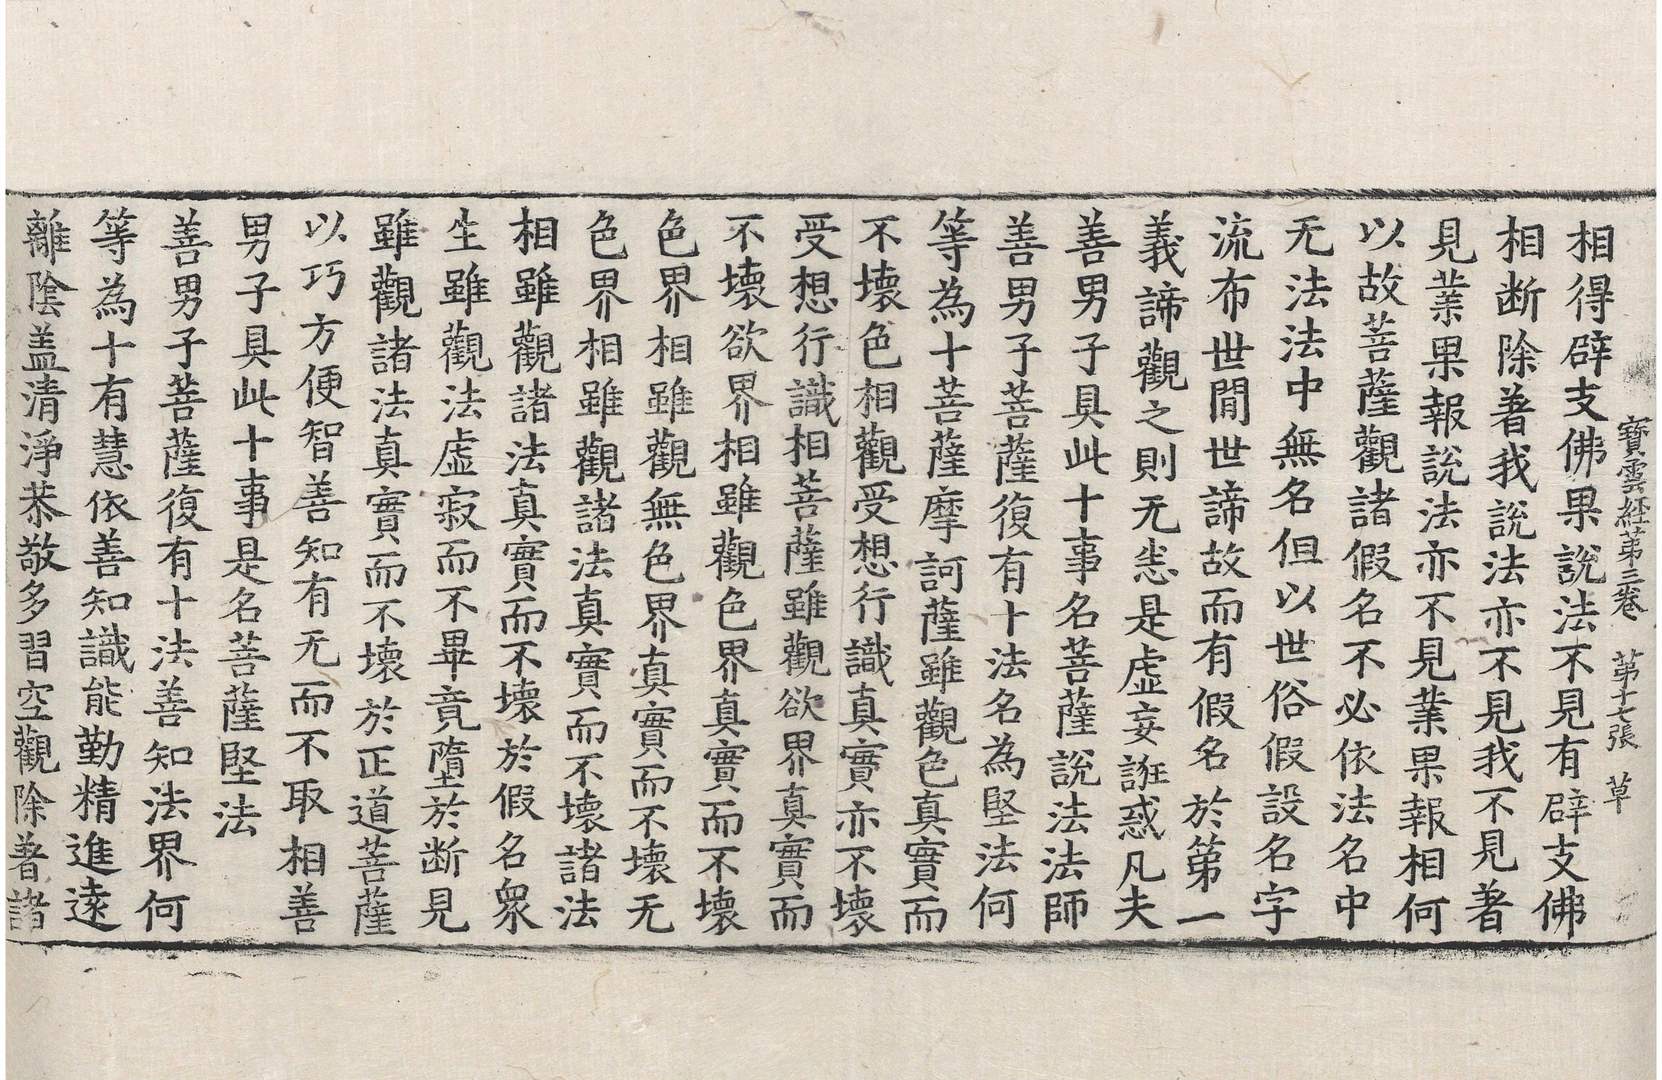 寶雲經第三卷　第十七張　草
相得辟支佛果說法不見有辟支佛
相断除著我說法亦不見我不見著
見業果報說法亦不見業果報相何
以故菩薩觀諸假名不必依法名中
无法法中無名但以世俗假設名字
流布世間世諦故而有假名於第一
義諦觀之則无恙是虛妄誑惑凡夫
善男子具此十事名菩薩說法法師
善男子菩薩復有十法名為堅法何
等為十菩薩摩訶薩雖觀色真實而
不壞色相觀受想行識真實亦不壞
受想行識相菩薩雖觀欲界真實而
不壞欲界相雖觀色界真實而不壞
色界相雖觀無色界真實而不壞无
色界相雖觀諸法真實而不壞諸法
相雖觀諸法真實而不壞於假名衆
生雖觀法虛寂而不畢竟墮於断見
雖觀諸法真實而不壞於正道菩薩
以巧方便智善知有无而不取相善
男子具此十事是名菩薩堅法
善男子菩薩復有十法善知法界何
等為十有慧依善知識能勤精進遠
離陰盖清淨恭敬多習空觀除著諸